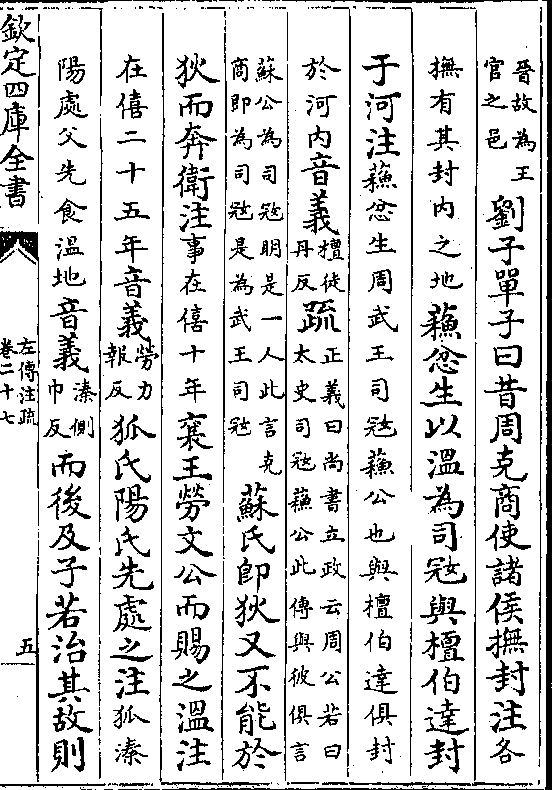 晉故為王
官之邑
劉子單子曰昔周克商使諸侯撫封注各
撫有其封内之地蘓忿生以溫為司寇與檀伯達封
于河注蘓忿生周武王司寇蘓公也與檀伯達俱封
於河内音義
檀徒
丹反
疏
正義曰尚書立政云周公若曰
太史司寇蘓公此傳與彼俱言
蘇公為司寇明是一人此言克
商即為司寇是為武王司寇
蘇氏即狄又不能於
狄而奔衛注事在僖十年襄王勞文公而賜之溫注
在僖二十五年音義
勞力
報反
狐氏陽氏先處之注狐溱
陽處父先食溫地音義
溱側
巾反
而後及子若治其故則
欽定四庫全書
左傳注疏
卷二十七
五